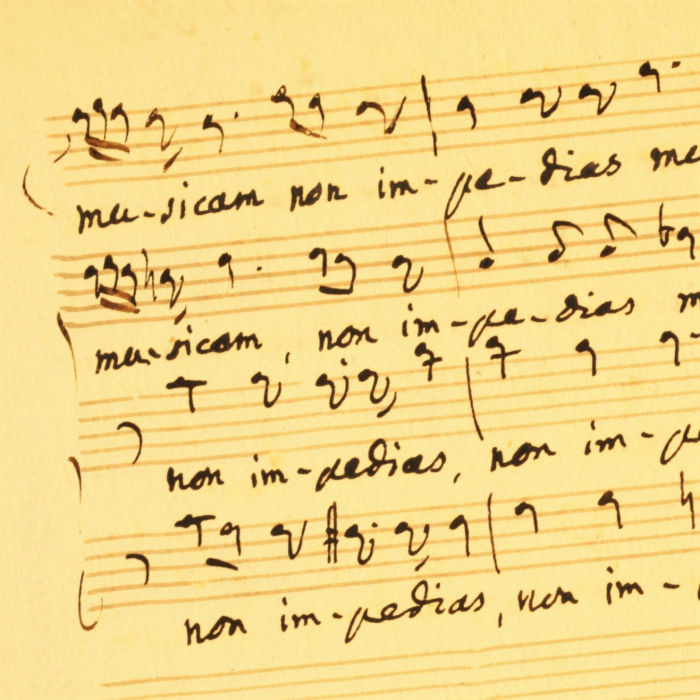 mu-sicam non im-pe-dias
musicam, non im-pe-dias
non im-pedias, non im-
non im-pedias, non im-